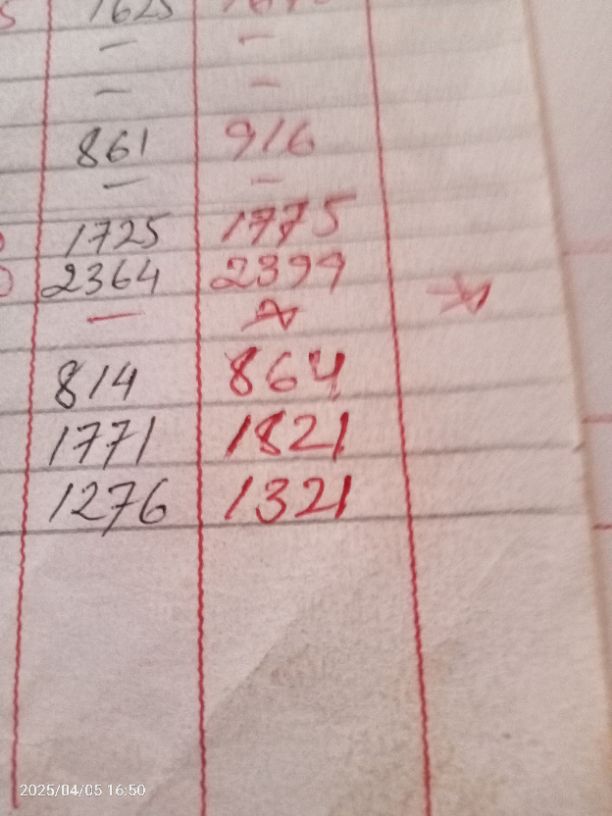 1625
— —
— —
861 916
— —
1725 1775
2364 2399
—
814 864
1771 1821
1276 1321
2025/04/05 16:50